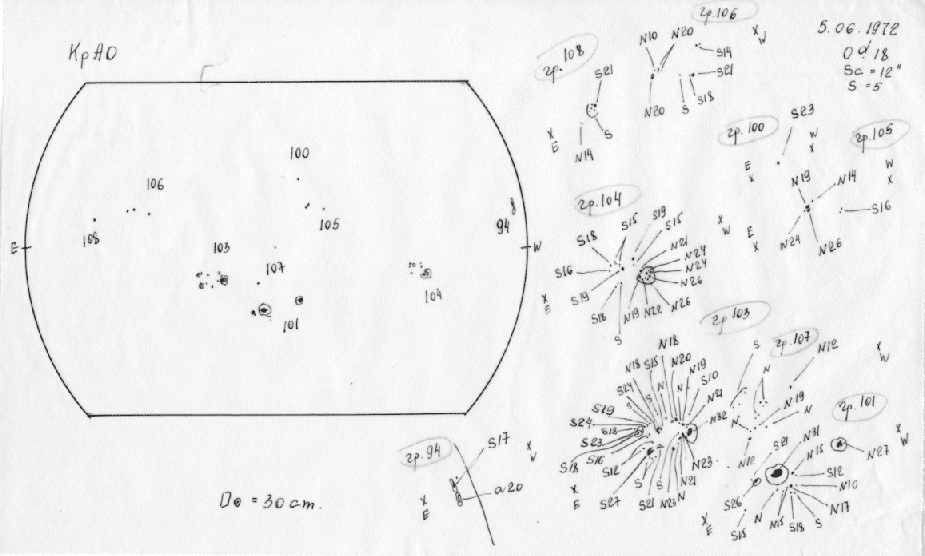 КрАО
5.06.1972
S = 5
Sc = 12"
гр.108
S21
S
N14
X
E
гр.106
N10
N20
X
W
S14
S21
N20
S
S18
гр.100
S23
W
X
E
X
гр.105
W
X
N19
N14
S16
N24
N26
E
X
100
106
108
105
94
103
107
104
101
E
W
гр.104
S15
S19
S15
S18
N21
N24
N24
N26
N26
S16
S19
S18
N19
N22
S
X
W
X
E
гр.103
N18
N18
S15
N20
N19
S10
N21
N32
S24
S19
S24
S18
S23
S18
S16
S12
S27
S
S
S21
N23
N
N21
N23
X
E
гр.107
S
N
N12
N19
N
N
N12
X
W
гр.101
S21
N31
N15
S12
N10
N17
S
S18
N15
N
S18
S26
N27
X
W
X
E
гр.94
S17
X
W
α20
X
E
D⊙ = 30 cm.